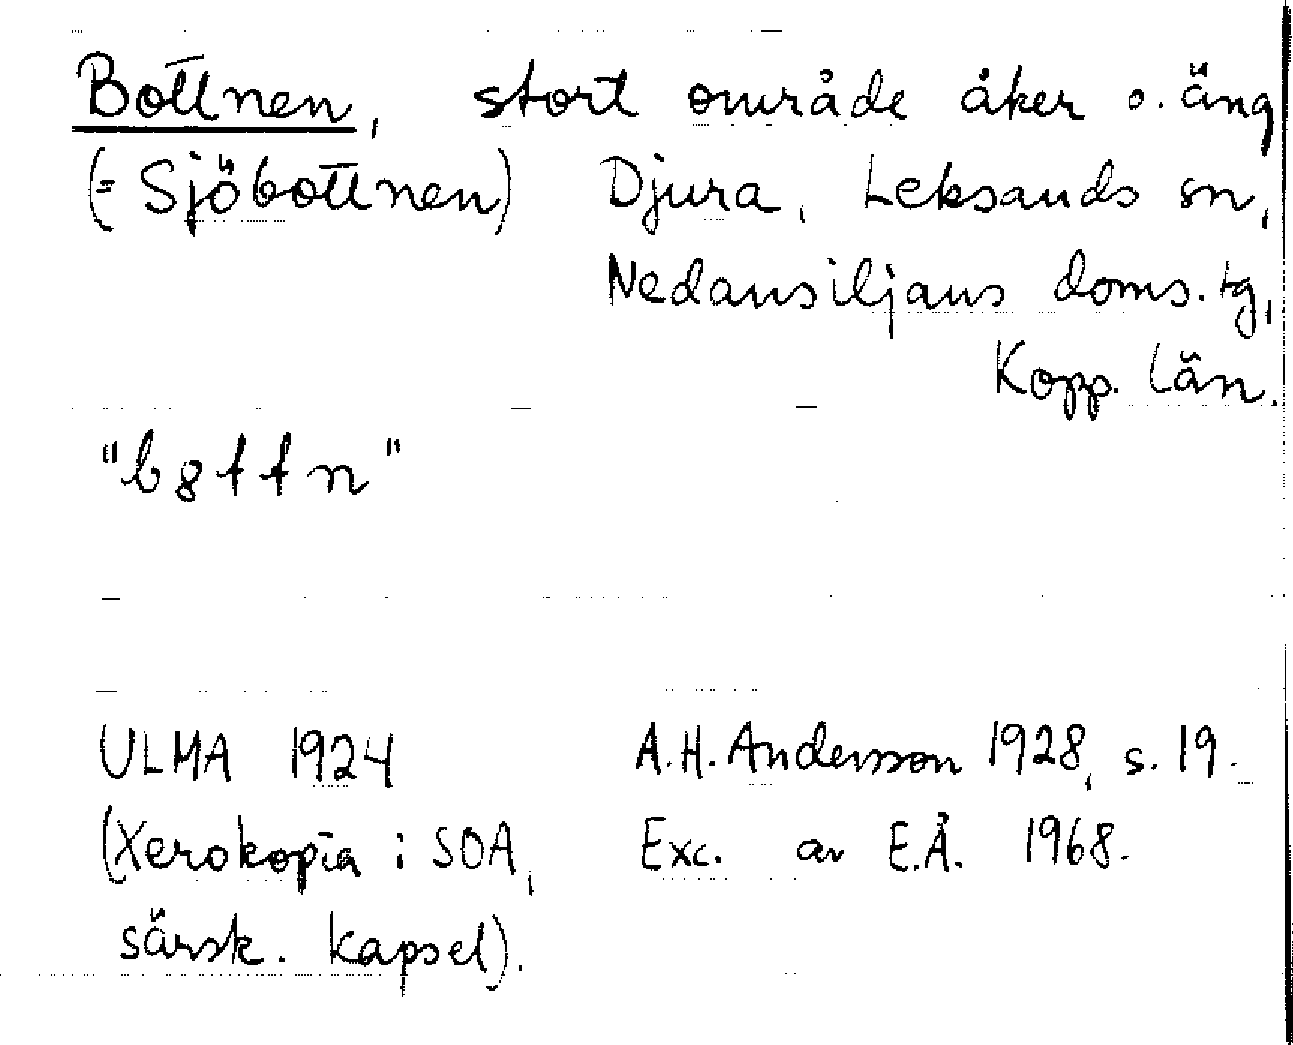 Bottnen, stort område åker o. äng
(= Sjöbottnen) Djura, Leksands sn,
Nedansiljans doms. tg,
Kopp. län.
"b8ttn"
ULMA 1924 A.H. Andersson 1928, s. 19.
(Xerokopia i SOA, Exc. av E.Å. 1968.
särsk. kapsel).